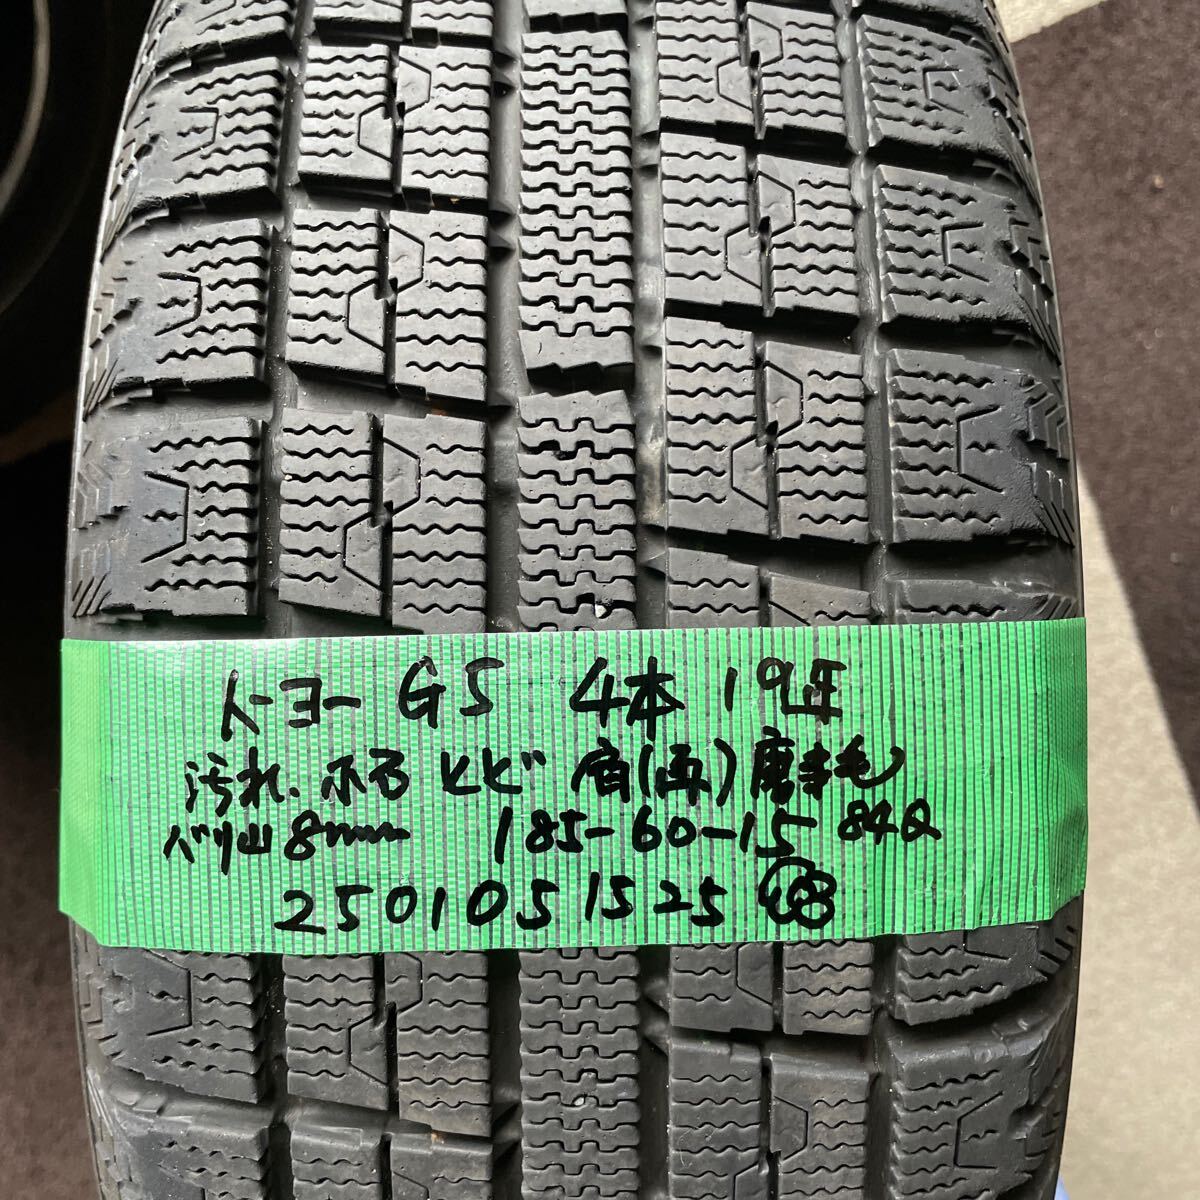 トヨー G5 4本 19年
汚れ、小石 ヒビ 肩(両)摩耗
バリ山 8mm 185-60-15 84Q
2501051525